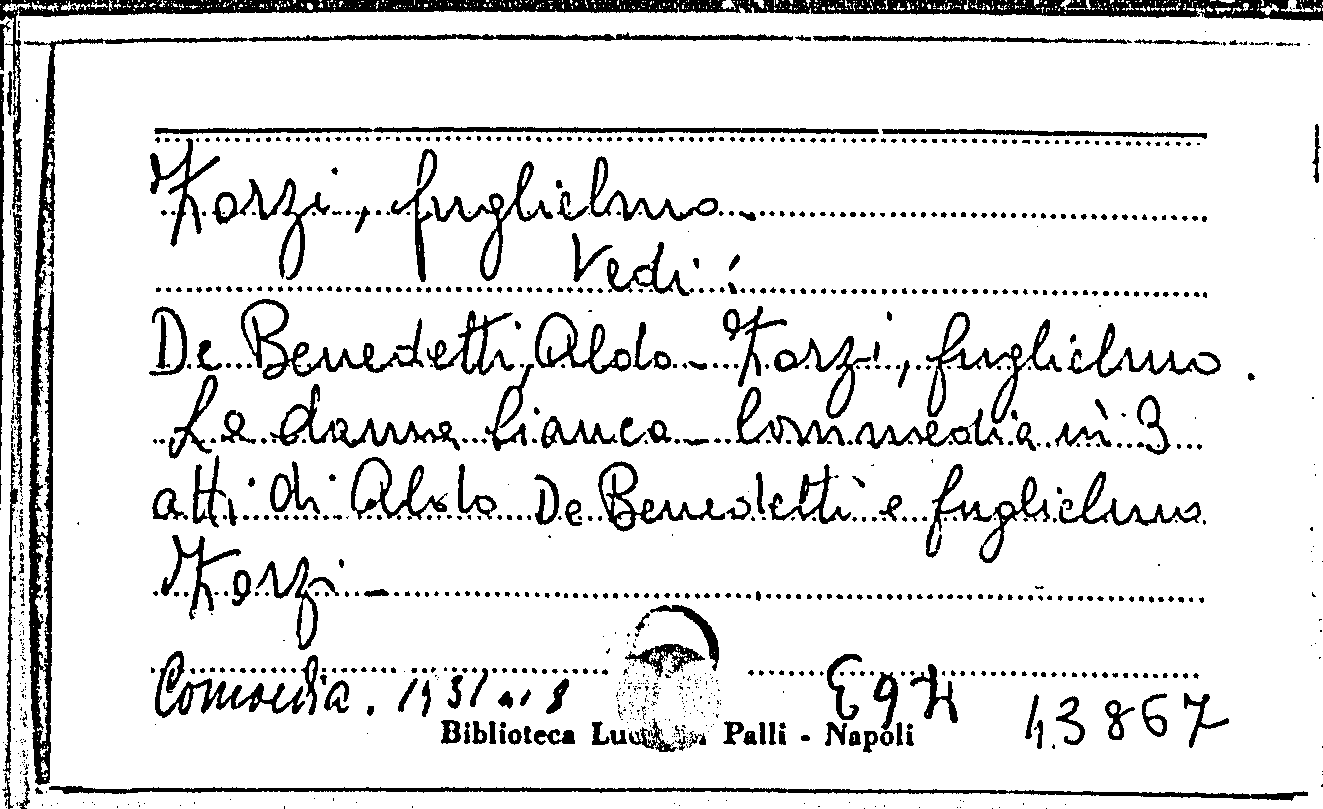 Zorzi, Guglielmo.
Vedi:
De Benedetti, Aldo - Zorzi, Guglielmo.
La donna bianca - Commedia in 3
atti di Aldo De Benedetti e Guglielmo
Zorzi -
Comoedia. 1931 n. 8 E 94 43867
Biblioteca Palli - Napoli